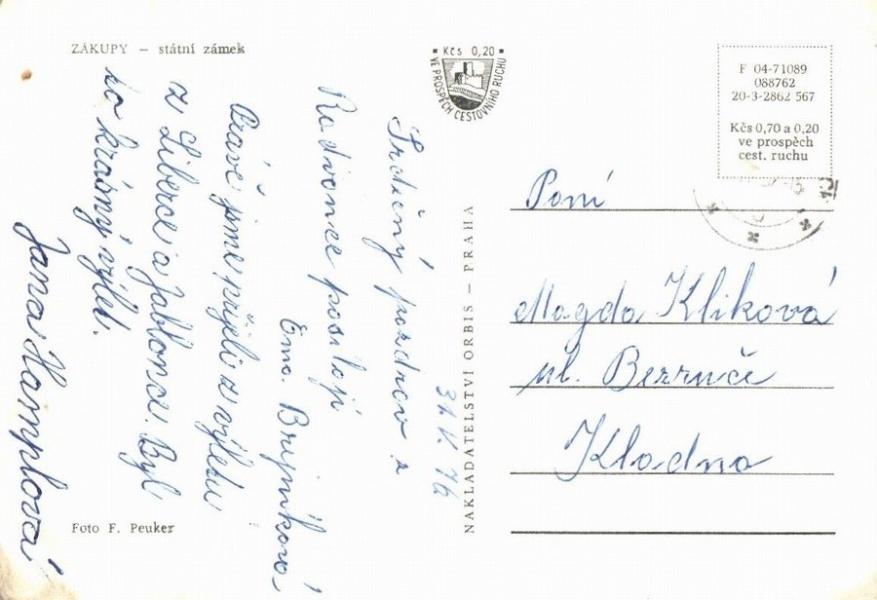 ZÁKUPY – státní zámek
Kčs 0,20
VE PROSPĚCH CESTOVNÍHO RUCHU
F 04-71089
088762
20-3-2862 567
Kčs 0,70 a 0,20
ve prospěch
cest. ruchu
31. V. 76
Srdečný pozdrav z
Radvance posílají
Ema. Brejníková
Právě jsme přijeli z výletu
z Liberce a Jablonce. Byl
to krásný výlet.
Jana Hamplová
Foto F. Peuker
NAKLADATELSTVÍ ORBIS – PRAHA
Paní
Magda Kliková
ul. Bezruče
Kladno